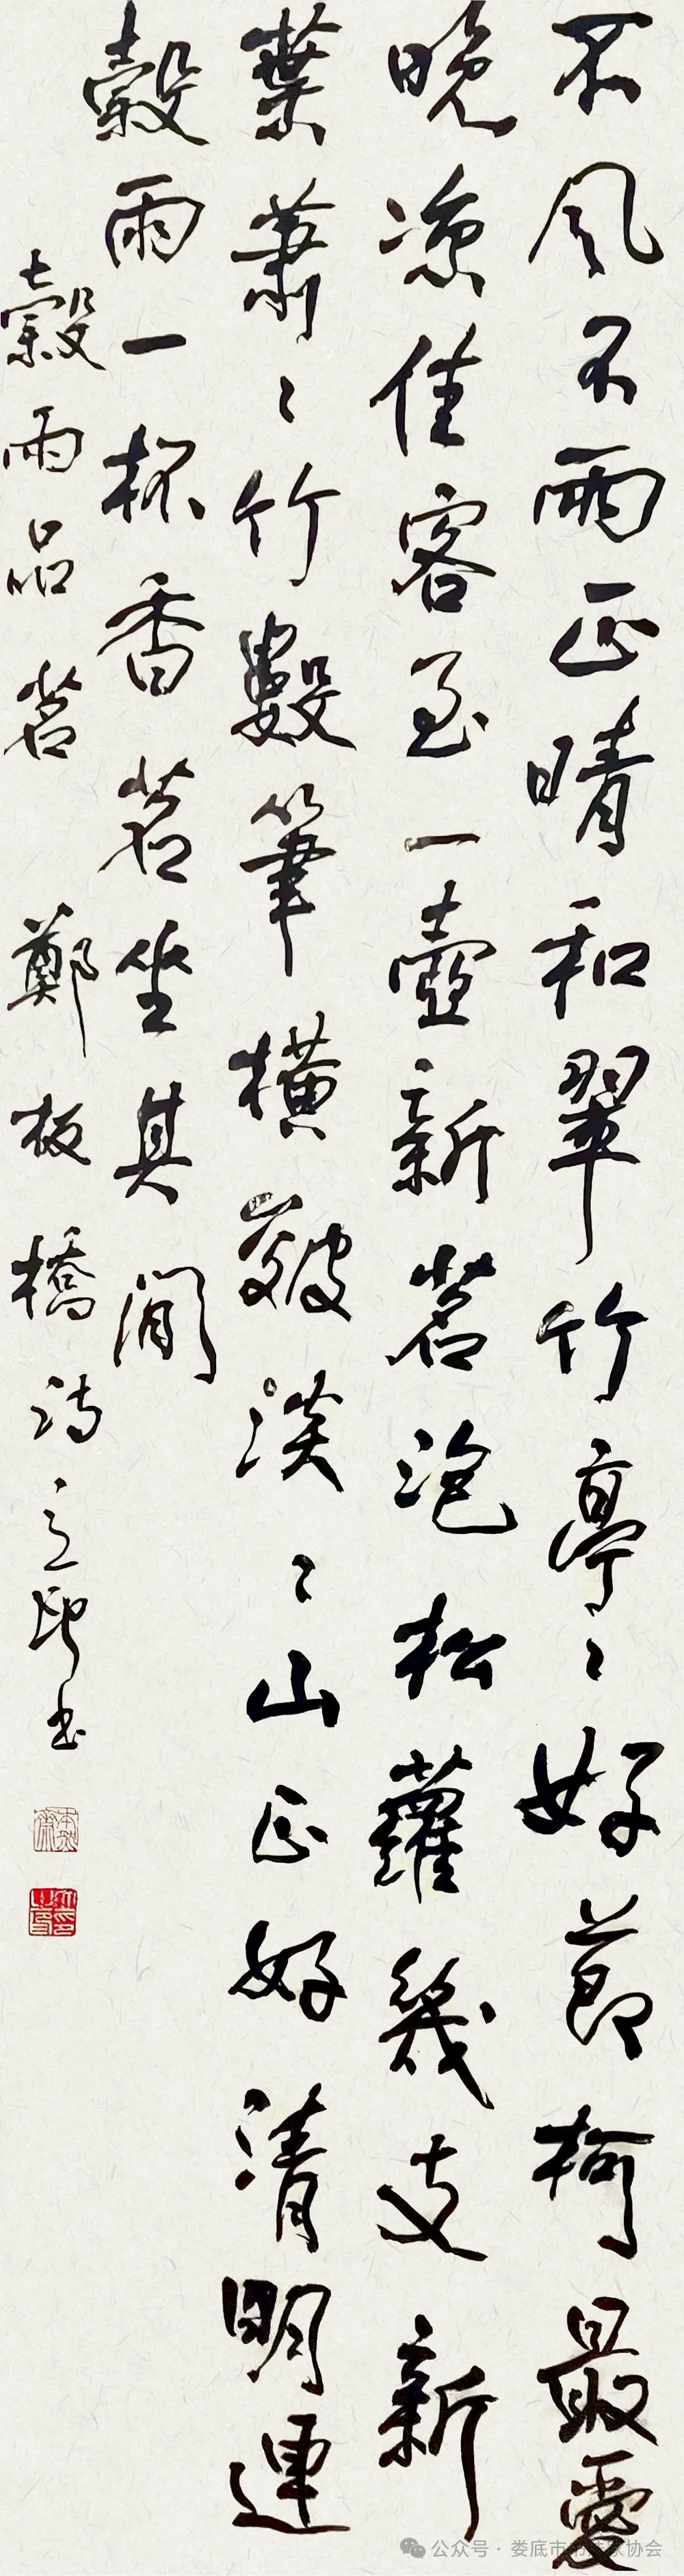 不風不雨正晴和翠竹亭〻好節柯最愛
晚涼佳客至一壺新茗泡松蘿幾支新
葉蕭〻竹數筆橫皴淡〻山正好清明連
穀雨一杯香茗坐其間
穀雨品茗 鄭板橋詩 书
公众号 · 娄底市书法家协会